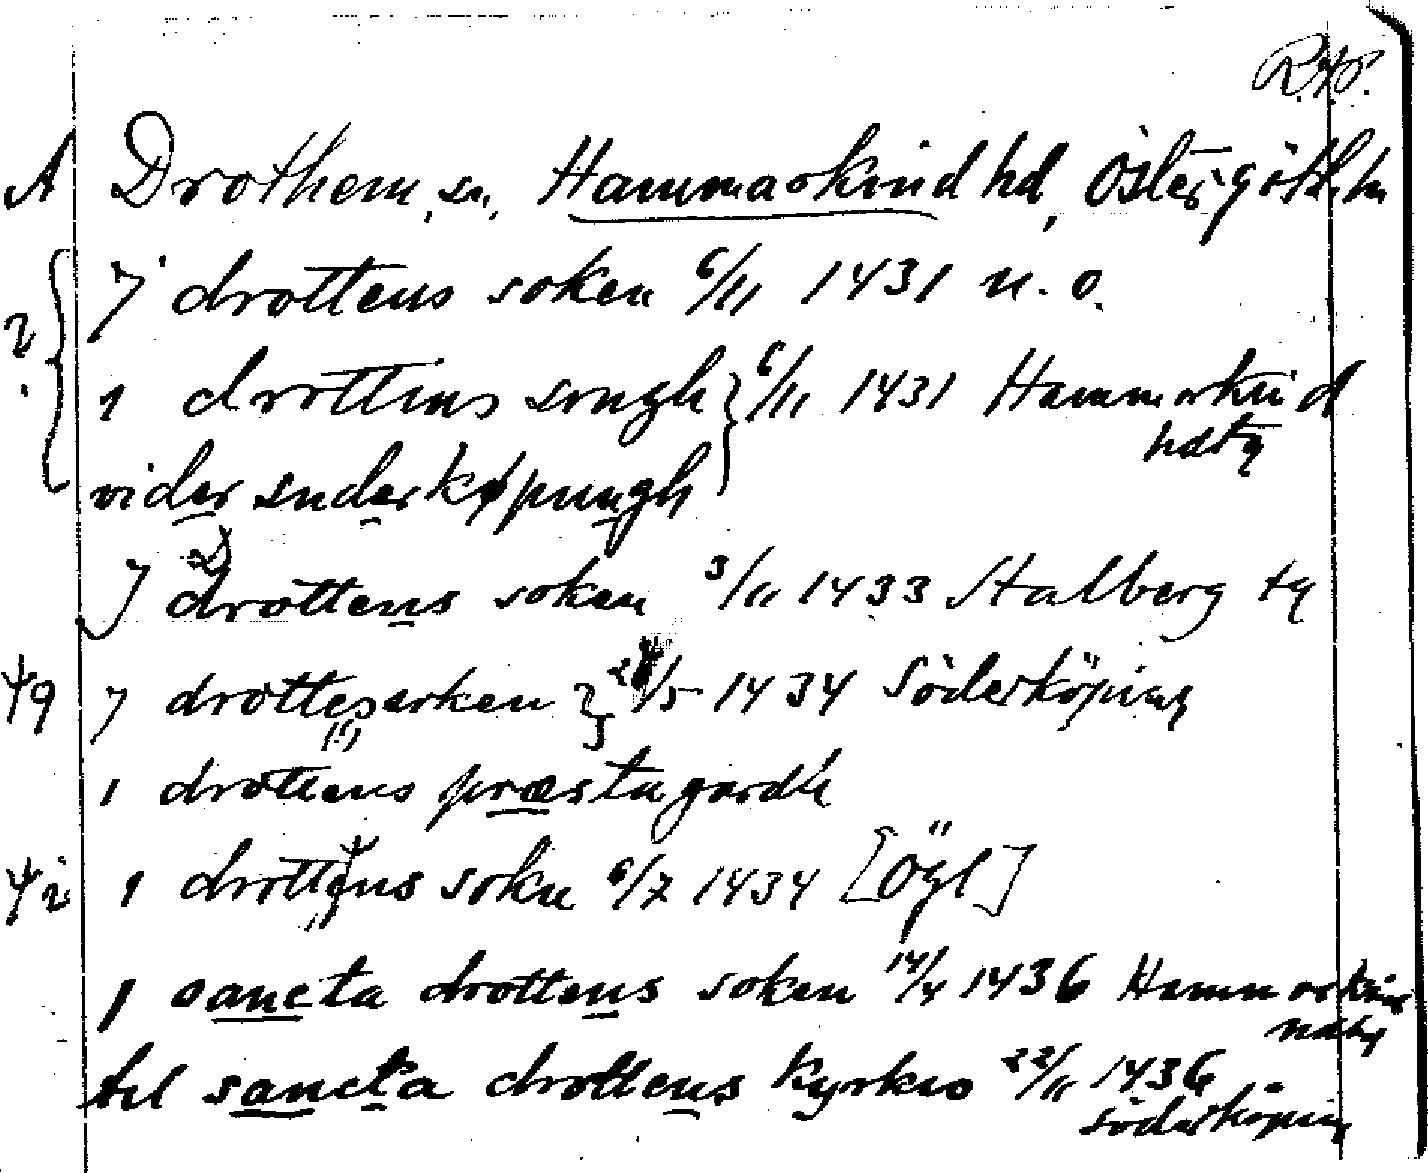 A Drothem, sn, Hammarkind hd, Östergötl. ln
J drottens soken 6/11 1431 n. o.
? i drottins songh } 6/11 1431 Hammarkind
hdstg
vider suderkøpungh
J drottens soken 3/11 1433 Stalberg tg
J drottesoken /5 1434 Söderköping
i drottens præstagardh
i drottens soken 6/7 1434 [Ögl]
J sancta drottens soken 14/4 1436 Hammarkind
hdstg
til sancta drottens kyrkio 22/11 1436
Söderköping